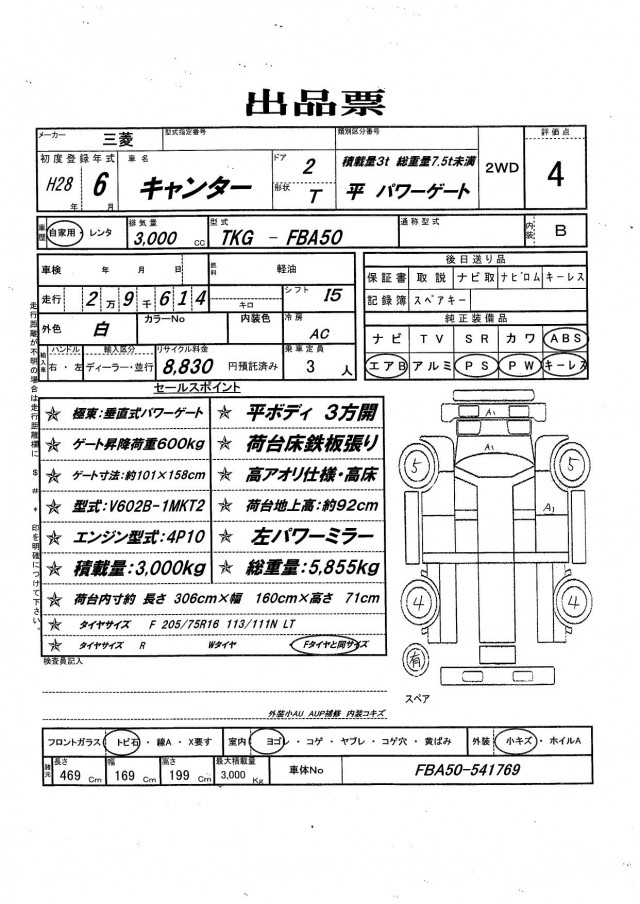 出品票
メーカー 三菱 型式指定番号 類別区分番号 評価点
初度登録年式 車名 ドア 2 積載量3t 総重量7.5t未満 2WD 4
H28年 6月 キャンター 形状 T 平 パワーゲート
車歴 自家用・レンタ 排気量 3,000 cc 型式 TKG - FBA50 通称型式 内装 B
車検 年 月 日 燃料 軽油 後日送り品
保証書 取説 ナビ取 ナビロム キーレス
走行 2万9千614 キロ シフト I5 記録簿 スペアキー
外色 白 カラーNo 内装色 冷房 AC 純正装備品
ナビ TV SR カワ ABS
輸入車 ハンドル 右・左 輸入区分 ディーラー・並行 リサイクル料金 8,830 円預託済み 乗車定員 3 人 エアB アルミ PS PW キーレス
セールスポイント
☆ 極東:垂直式パワーゲート ☆ 平ボディ 3方開
☆ ゲート昇降荷重600kg ☆ 荷台床鉄板張り
☆ ゲート寸法:約101×158cm ☆ 高アオリ仕様・高床
☆ 型式:V602B-1MKT2 ☆ 荷台地上高:約92cm
☆ エンジン型式:4P10 ☆ 左パワーミラー
☆ 積載量:3,000kg ☆ 総重量:5,855kg
☆ 荷台内寸約 長さ 306cm×幅 160cm×高さ 71cm
☆ タイヤサイズ F 205/75R16 113/111N LT
☆ タイヤサイズ R Wタイヤ Fタイヤと同サイズ
A1
5 A1 5
A1
4 4
有
スペア
検査員記入
外装小AU AUP補修 内装コキズ
フロントガラス トビ石・線A・X要す 室内 ヨゴレ・コゲ・ヤブレ・コゲ穴・黄ばみ 外装 小キズ・ホイルA
諸元 長さ 469 Cm 幅 169 Cm 高さ 199 Cm 最大積載量 3,000 Kg 車体No FBA50-541769
走行距離が不明の場合は走行距離欄に $ # * 印を明確につけて下さい。